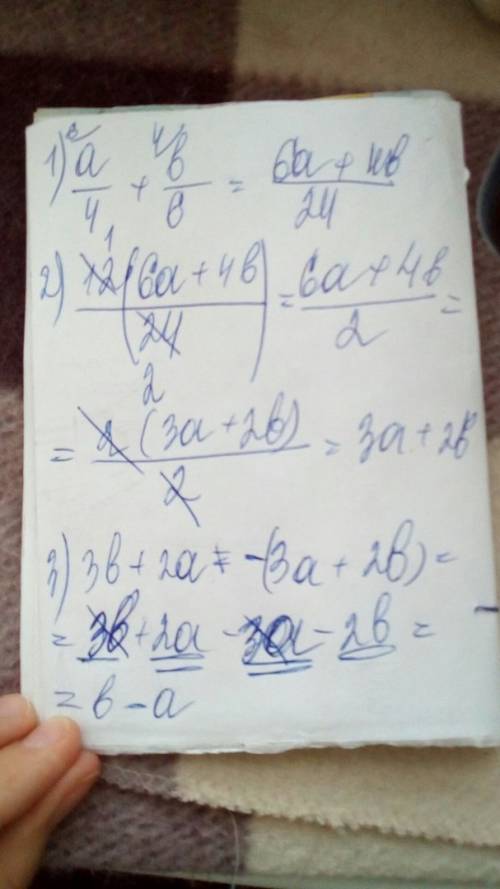 1) ⁶a/4 + ⁴b/6 = (6a + 4b)/24
2) 12¹((6a + 4b)/24₂) = (6a + 4b)/2 =
= 2(3a + 2b)/2 = 3a + 2b
3) 3b + 2a = -(3a + 2b) =
= 3b + 2a - 3a - 2b =
= b - a